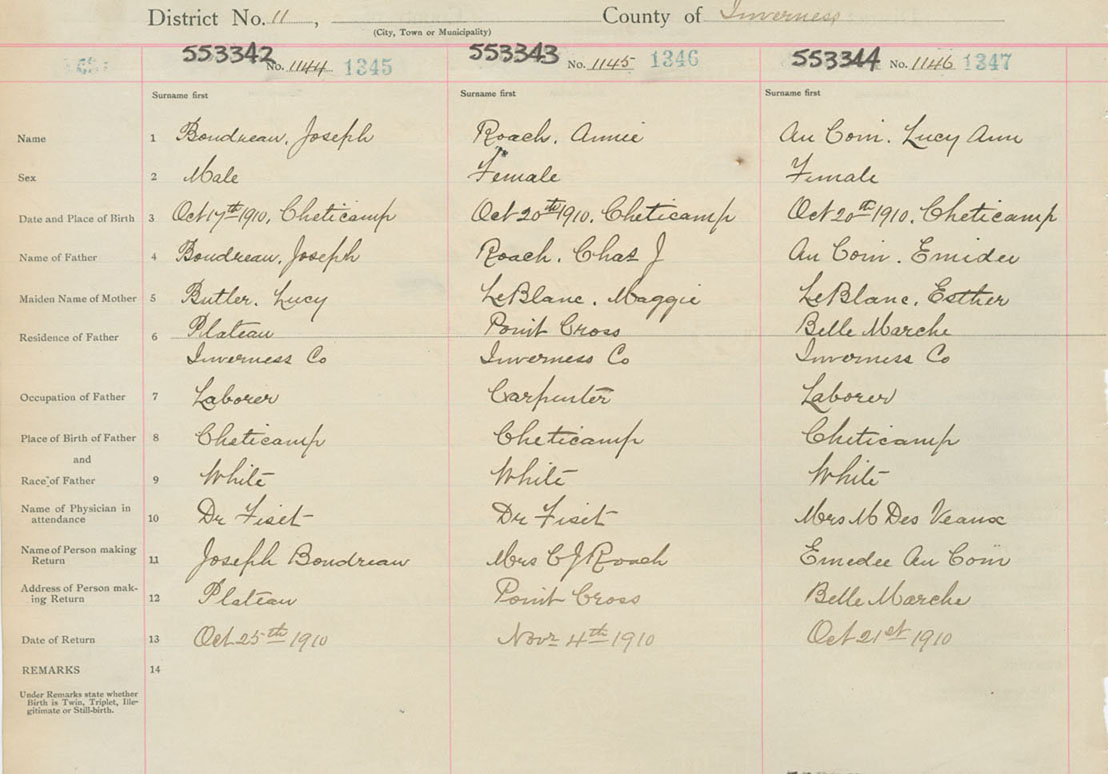 District No. 11, County of Inverness
(City, Town or Municipality)
553342 No. 1144 1345 553343 No. 1145 1346 553344 No. 1146 1347
Surname first Surname first Surname first
Name 1 Boudreau, Joseph Roach, Annie Au Coin, Lucy Ann
Sex 2 Male Female Female
Date and Place of Birth 3 Oct 17th 1910, Cheticamp Oct 20th 1910, Cheticamp Oct 20th 1910, Cheticamp
Name of Father 4 Boudreau, Joseph Roach, Chas J Au Coin, Emidee
Maiden Name of Mother 5 Butler, Lucy LeBlanc, Maggie LeBlanc, Esther
Residence of Father 6 Plateau Point Cross Belle Marche
Inverness Co Inverness Co Inverness Co
Occupation of Father 7 Laborer Carpenter Laborer
Place of Birth of Father 8 Cheticamp Cheticamp Cheticamp
and
Race of Father 9 White White White
Name of Physician in
attendance 10 Dr Fiset Dr Fiset Mrs M Des Veaux
Name of Person making
Return 11 Joseph Boudreau Mrs C J Roach Emedee Au Coin
Address of Person mak-
ing Return 12 Plateau Point Cross Belle Marche
Date of Return 13 Oct 25th 1910 Novr 4th 1910 Oct 21st 1910
REMARKS 14
Under Remarks state whether
Birth is Twin, Triplet, Ille-
gitimate or Still-birth.